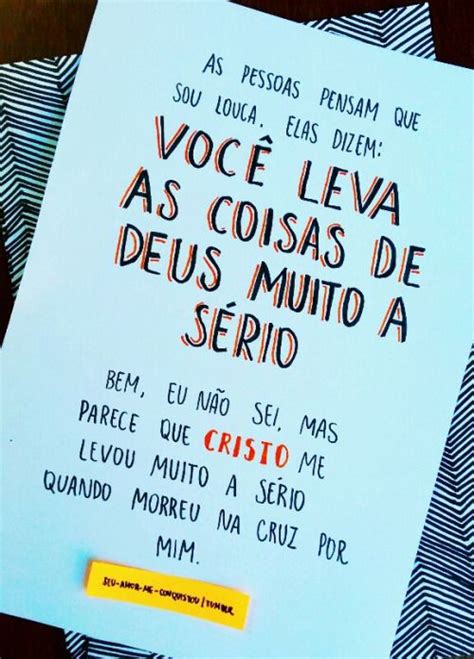 AS PESSOAS PENSAM QUE
SOU LOUCA. ELAS DIZEM:
VOCÊ LEVA
AS COISAS DE
DEUS MUITO A
SÉRIO
BEM, EU NÃO SEI, MAS
PARECE QUE CRISTO ME
LEVOU MUITO A SÉRIO
QUANDO MORREU NA CRUZ POR
MIM.
SEU-AMOR-ME-CONQUISTOU/TUMBLR